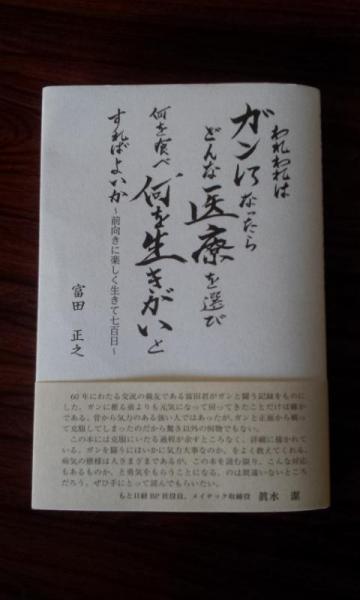 われわれは
ガンになったら
どんな医療を選び
何を食べ、何を生きがいと
すればよいか
～前向きに楽しく生きて七百日～
富田 正之
60年にわたる交流の親友である富田君がガンと闘う記録をものに
した。ガンに罹る前よりも元気になって帰ってきたことだけは確か
である。昔から気力のある強い人ではあったが、ガンと正面から戦っ
て克服してしまったのだから驚き以外の何物でもない。
この本には克服にいたる過程が余すところなく、詳細に描かれて
いる。ガンを闘うにはいかに気力大事なのか、をよく教えてくれる。
病気の模様は人さまざまであるが、この本を読む限り、こんな対応
もあるものか、と勇気をもらうことになる、のは間違いないところ
だろう。ぜひ手にとって読んでもらいたい。
もと日経BP社役員、メイテック取締役 眞水 潔